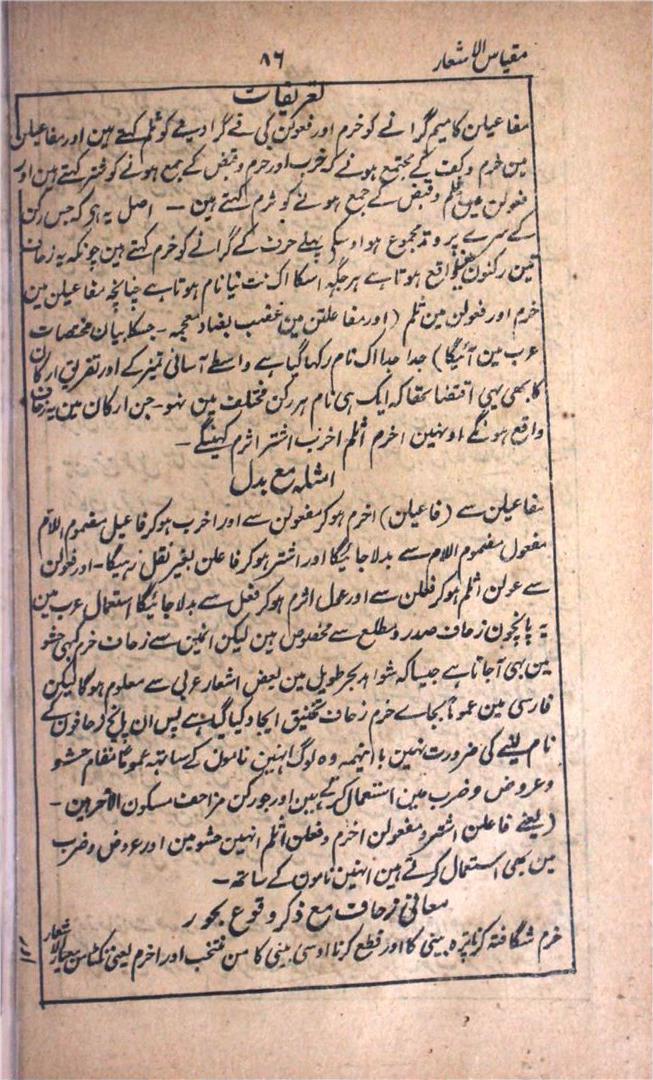 مقیاس الاشعار
۸۶
تعریفات
مفاعیلن کا میم گرانے کو خرم اور فعولن کی نے گرا دینے کو ثلم کہتے ہین اور مفاعیلن
مین خرم و کف کے مجتمع ہونے کہ خرب اور خرم و قبض کے جمع ہونے کو شتر کہتے ہین اور
فعولن مین ثلم و قبض کے جمع ہونے کو ثرم کہتے ہین — اصل یہ ہی کہ جس رکن
کے سرے پر وتد مجموع ہو اوسکے پہلے حرف کے گرانے کو خرم کہتے ہین چونکہ یہ زحاف
تین رکنون مین واقع ہوتا ہے ہر جگہہ اسکا اک نت نیا نام ہوتا ہے چنانچہ مفاعیلن مین
خرم اور فعولن مین ثلم (اور مفاعلتن مین عضب بضاد معجمہ - جسکا بیان مختصات
عرب مین آئیگا) جدا جدا اک نام رکھا گیا ہے واسطے آسانی تمیز کے اور تفریق ارکان
کا بھی یہی اقتضا تھا کہ ایک ہی نام ہر رکن مختلف مین نہو - جن ارکان مین یہ زحاف
واقع ہونگے اونہین اخرم اثلم اخرب اشتر اثرم کہینگے —
امثلہ مع بدل
مفاعیلن سے (فاعیلن) اخرم ہو کر مفعولن سے اور اخرب ہو کر فاعیل مضموم اللام
مفعول مضموم اللام سے بدلا جائیگا اور اشتر ہو کر فاعلن بغیر نقل رہیگا - اور فعولن
سے عولن اثلم ہو کر فعلن سے اور عول اثرم ہو کر فعل سے بدلا جائیگا استعمال عرب مین
یہ پانچون زحاف صدر و مطلع سے مخصوص ہین لیکن انمین سے زحاف خرم کبہی حشو
مین بہی آجاتا ہے جیسا کہ شواہد بحر طویل مین بعض اشعار عربی سے معلوم ہو گا لیکن
فارسی مین عموماً بجاے خرم زحاف تخنیق ایجاد کیا گیا ہے پس ان پانچ زحافون کے
نام لینے کی ضرورت نہین با اینہمہ وہ لوگ انہین نامون کے ساتہہ عموماً مقام حشو
و عروض و ضرب مین استعمال کرتے ہین اور جو رکن مزاحف مسکون الآخر ہین —
(یعنے فاعلن اشتر و مفعولن اخرم و فعلن اثلم انہین حشو مین اور عروض و ضرب
مین بھی استعمال کرتے ہین انہین نامون کے ساتہہ —
معانی زحافت مع ذکر وقوع بحور
خرم شگافتہ کرنا پرہ بینی کا اور قطع کرنا اوسی بینی کا من منتخب اور اخرم یعنی نکٹا من